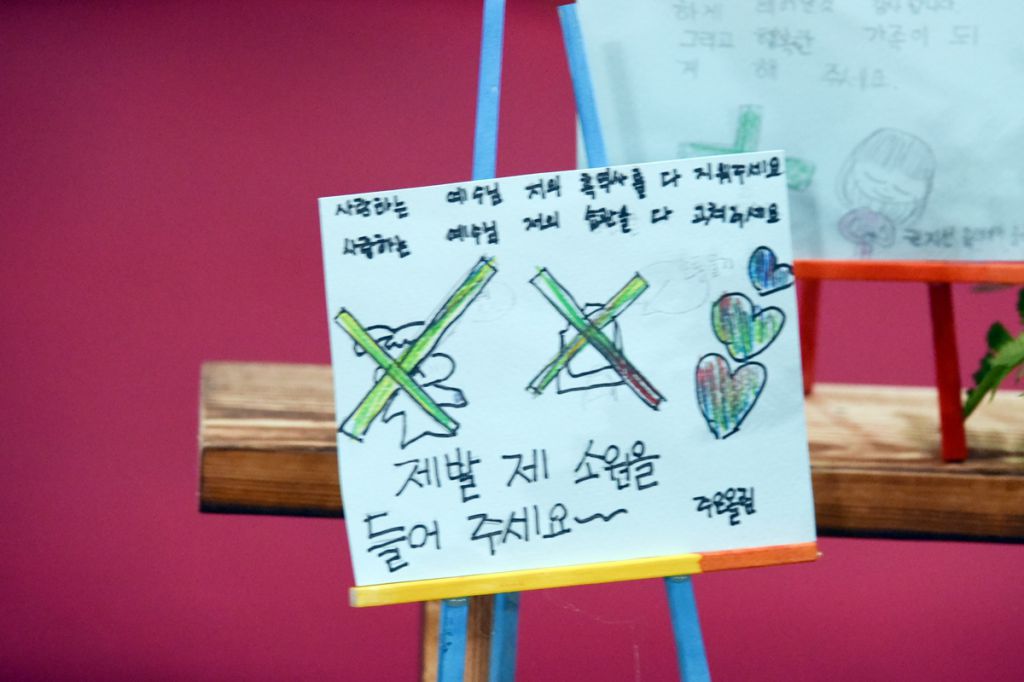 하게
그리고 행복한 가족이 되
게 해 주세요.
사랑하는 예수님 저의 흑역사를 다 지워주세요
사랑하는 예수님 저의 습관을 다 고쳐주세요
제발 제 소원을
들어 주세요~
올림